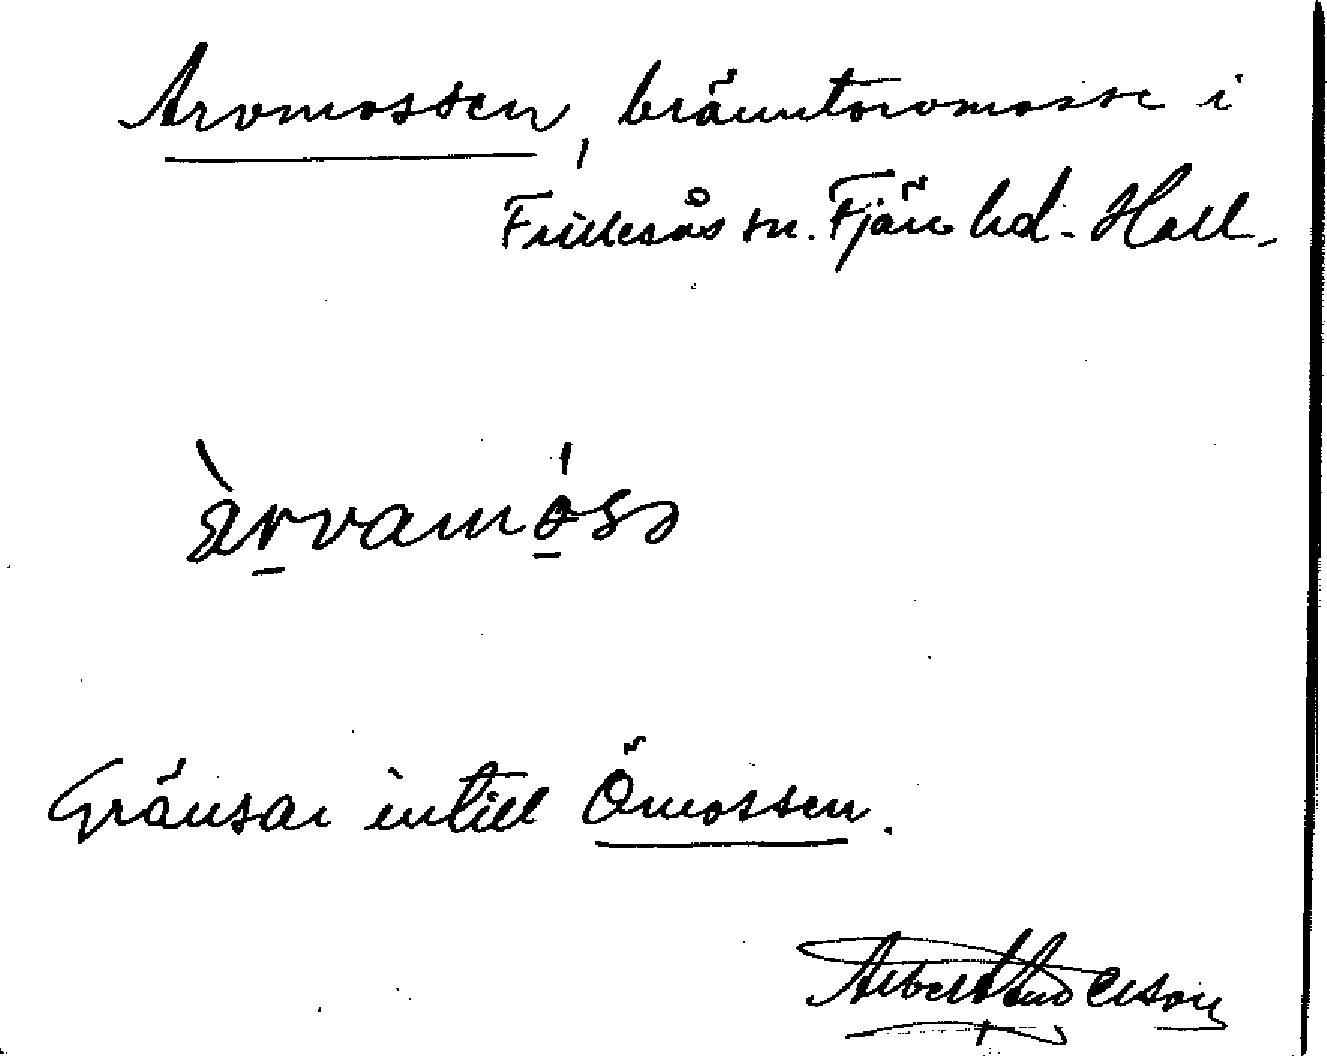 Arvmossen, bränntorvmosse i
Frillesås sn. Fjäre hd. Hall.
àrvamóss
Gränsar intill Ömossen.
Albert Andersson